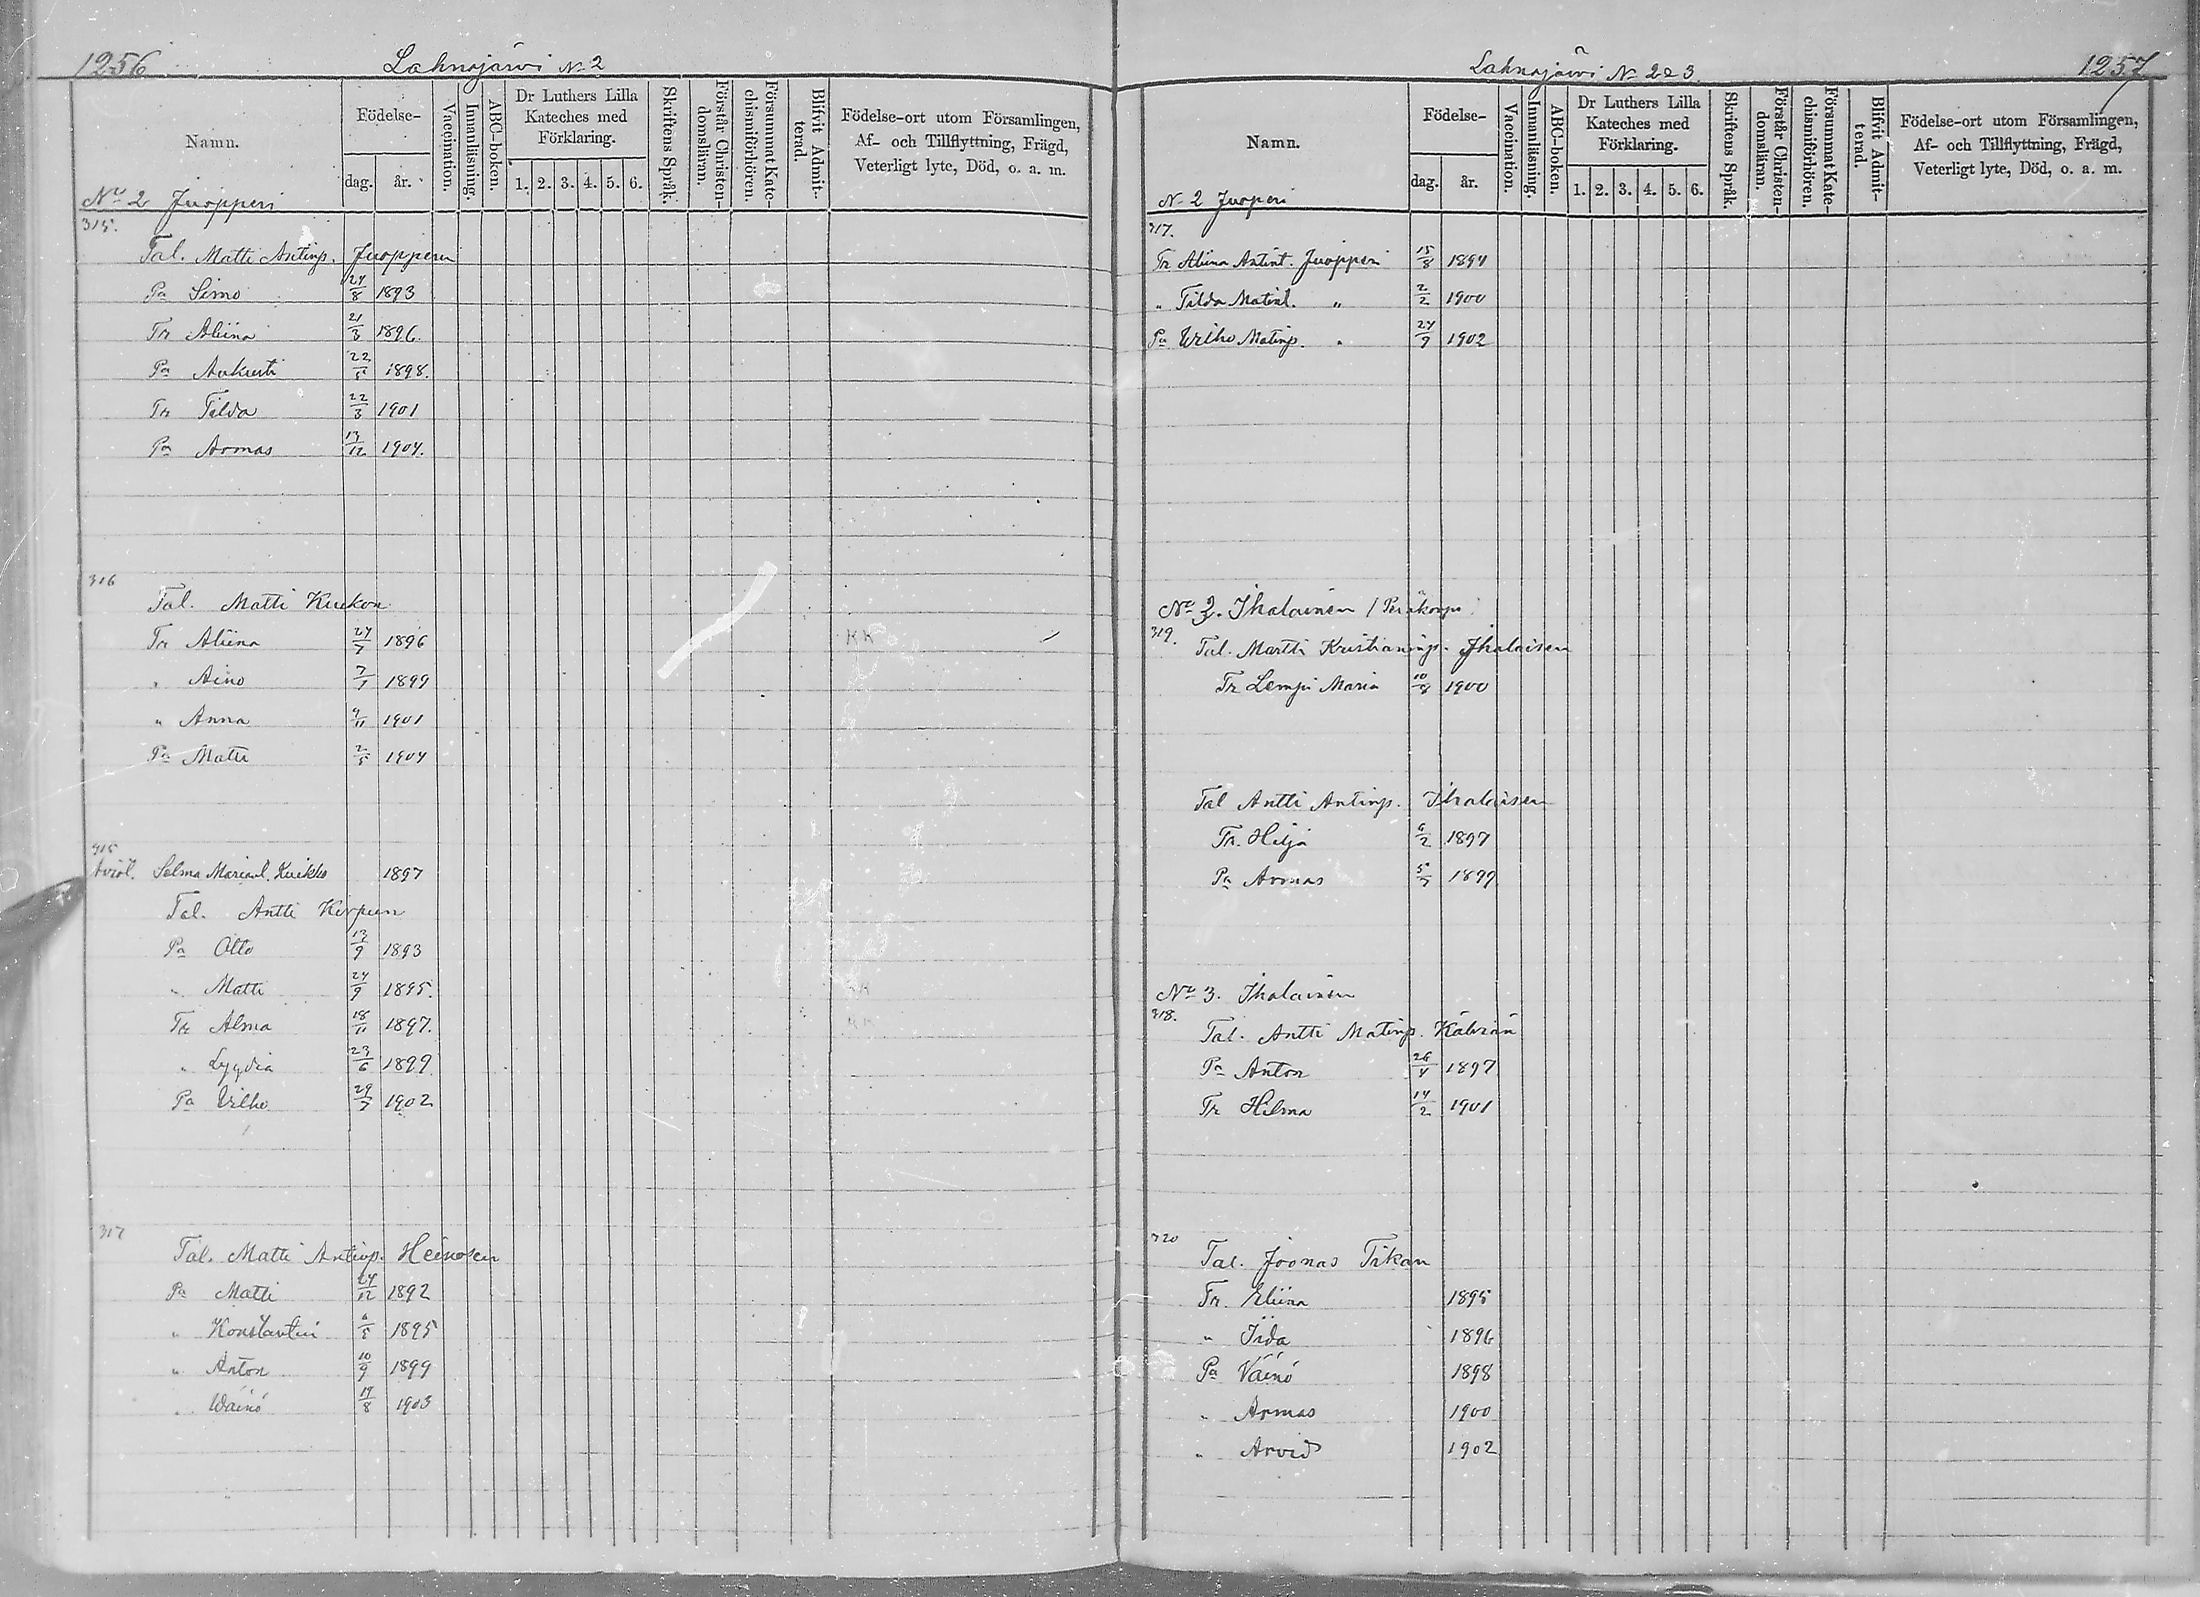 1256 Lahnajärvi No 2
Namn.
Födelse-
dag. år.
Vaccination.
Innanläsning.
ABC-boken.
Dr Luthers Lilla
Kateches med
Förklaring.
1. 2. 3. 4. 5. 6.
Skriftens Språk.
Förstår Christen-
domsläran.
Försummat Kate-
chismiförhören.
Blifvit Admit-
terad.
Födelse-ort utom Församlingen,
Af- och Tillflyttning, Frägd,
Veterligt lyte, Död, o. a. m.
No 2 Juopperi
315.
Tal. Matti Antinp. Juopperin
Pa Simo 24/8 1893
Tr Aliina 21/3 1896.
Pa Aukusti 22/5 1898.
Tr Tilda 22/3 1901
Pa Armas 13/12 1904.
316
Tal. Matti Kuikon
Tr Aliina 24/7 1896 KK
" Aino 7/7 1899
" Anna 9/11 1901
Pa Matti 2/5 1904
315
Aviöl. Selma Marianl. Kuikko 1897
Tal. Antti Kerpuen
Pa Otto 13/9 1893
" Matti 24/9 1895. KK
Tr Alma 18/11 1897. KK
" Lygdia 23/6 1899
Pa Vilho 29/7 1902
317
Tal. Matti Antinp. Heinosen
Pa Matti 24/12 1892
" Konstantin 6/5 1895
" Anton 10/9 1899
" Wäinö 14/8 1903
Lahnajärvi No 2 o 3. 1257
Namn.
Födelse-
dag. år.
Vaccination.
Innanläsning.
ABC-boken.
Dr Luthers Lilla
Kateches med
Förklaring.
1. 2. 3. 4. 5. 6.
Skriftens Språk.
Förstår Christen-
domsläran.
Försummat Kate-
chismiförhören.
Blifvit Admit-
terad.
Födelse-ort utom Församlingen,
Af- och Tillflyttning, Frägd,
Veterligt lyte, Död, o. a. m.
No 2 Juoperi
317.
Tr Aliina Antint. Juopperi 15/8 1894
" Tilda Matint. " 2/2 1900
Pa Vilho Matinp. " 24/9 1902
No 2. Ihalainen / Peräkorpi
319.
Tal. Martti Kristianinp. Ihalaisen
Tr Lempi Maria 10/8 1900
Tal Antti Antinp. Ihalaisen
Tr. Hilja 6/2 1897
Pa Armas 5/7 1899
No 3. Ihalainen
318.
Tal. Antti Matinp. Kälviän
Pa Anton 26/4 1897
Tr Hilma 14/2 1901
320
Tal. Joonas Tikan
Tr. Eliina 1895
" Iida 1896
Pa Väinö 1898
" Armas 1900
" Arvid 1902